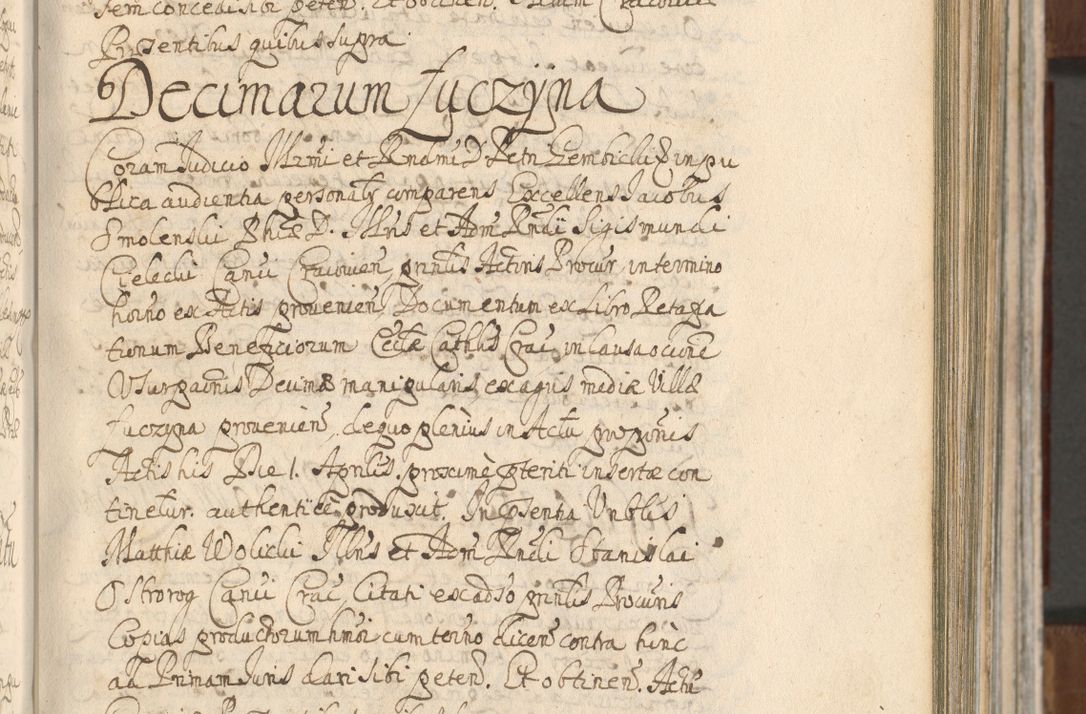 Praesentibus quibus supra
Decimarum Łuczyna
Coram Judicio Illrmi et Rndmi D Petri Gembicki E in pu
blica audientia personalr comparens Excellens Jacobus
Smolenski Phiae D. Illris et Adm Rndi Sigismundi
Cielecki Canci Cracovien, prinlis Actoris Procur, in termino
horno ex Actis provenien Documentum ex Libro Retaxa
tionum Beneficiorum Eccae Cathlis Crac in causa occne
Usurpaonis Decimae manipularis, ex agris mediae Villae
Łuczyna provenien, de quo plenius in Actu
Actis his Die 1. Aprilis. proxime pteriti insertae con
tinetur. authentice produxit. In psentia Vnblis
Matthiae Wolicki Illris et Adm Rndi Stanislai
Ostrorog Canci Crac, Citati ex adso prinlis Procuris
Copias productorum hmoi cum termo dicen contra hinc
ad Primam Juris dari sibi peten. Et obtinen. Acti